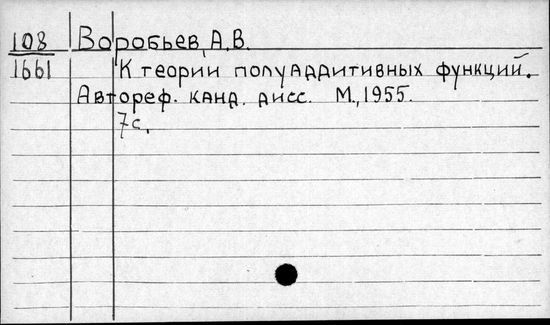 108 Воробьев, А.В.
1661 К теории полуаддитивных функций.
Автореф. канд. дисс. М., 1955.
7с.